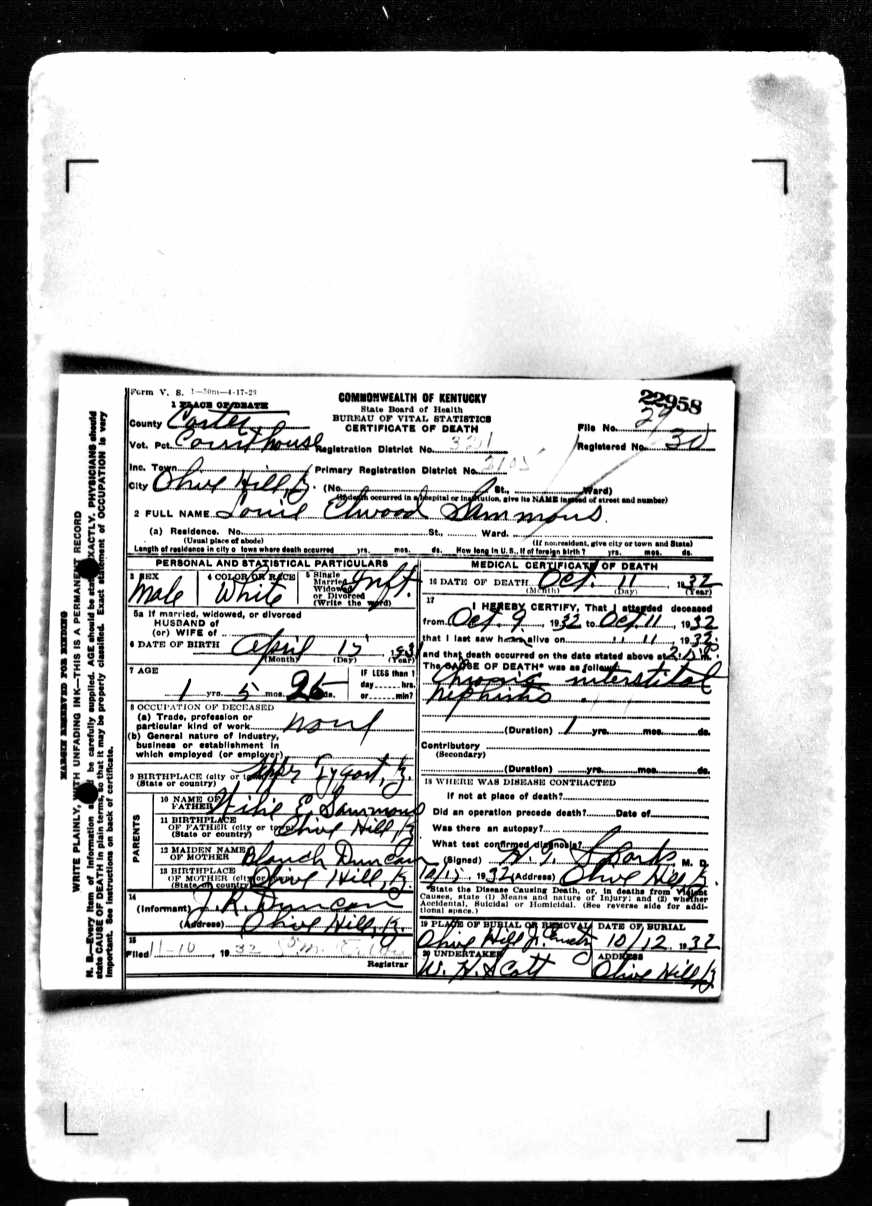 Form V. S. 1—50m—4-17-29
COMMONWEALTH OF KENTUCKY
State Board of Health
BUREAU OF VITAL STATISTICS
CERTIFICATE OF DEATH
22958
File No. 27
Registered No. 30
1 PLACE OF DEATH
County Carter
Vot. Pct. Courthouse Registration District No. 321
Inc. Town Primary Registration District No.
City Olive Hill, Ky. (No. St., Ward)
(If death occurred in a hospital or institution, give its NAME instead of street and number)
2 FULL NAME Louie Elwood Sammons
(a) Residence. No. St., Ward.
(Usual place of abode) (If nonresident, give city or town and State)
Length of residence in city o town where death occurred yrs. mos. ds. How long in U. S., if of foreign birth? yrs. mos. ds.
PERSONAL AND STATISTICAL PARTICULARS
3 SEX Male
4 COLOR OR RACE White
5 Single Married Widowed or Divorced (Write the word) Inft.
5a If married, widowed, or divorced
HUSBAND of
(or) WIFE of
6 DATE OF BIRTH April 15 1931
(Month) (Day) (Year)
7 AGE 1 yrs. 5 mos. 26 ds.
IF LESS than 1 day hrs. or min?
8 OCCUPATION OF DECEASED
(a) Trade, profession or particular kind of work none
(b) General nature of industry, business or establishment in which employed (or employer)
9 BIRTHPLACE (city or town) Upper Tygart, Ky.
(State or country)
PARENTS
10 NAME OF FATHER E. Sammons
11 BIRTHPLACE OF FATHER (city or town) Olive Hill, Ky
(State or country)
12 MAIDEN NAME OF MOTHER Blanch Duncan
13 BIRTHPLACE OF MOTHER (city or town) Olive Hill, Ky.
(State or country)
14
(Informant) J. R. Duncan
(Address) Olive Hill, Ky.
15
Filed 11-10, 1932
Registrar
MEDICAL CERTIFICATE OF DEATH
16 DATE OF DEATH Oct. 11 1932
(Month) (Day) (Year)
17
I HEREBY CERTIFY, That I attended deceased
from Oct. 9, 1932 to Oct 11, 1932
that I last saw h alive on 11, 1932
and that death occurred on the date stated above at m.
The CAUSE OF DEATH* was as follows:
Chronic interstital
nephritis
(Duration) 1 yrs. mos. ds.
Contributory
(Secondary)
(Duration) yrs. mos. ds.
18 WHERE WAS DISEASE CONTRACTED
If not at place of death?
Did an operation precede death? Date of
Was there an autopsy?
What test confirmed diagnosis?
(Signed) Sparks M. D.
10/15, 1932 (Address) Olive Hill Ky.
*State the Disease Causing Death, or, in deaths from Violent Causes, state (1) Means and nature of Injury; and (2) whether Accidental, Suicidal or Homicidal. (See reverse side for additional space.)
19 PLACE OF BURIAL OR REMOVAL
Olive Hill
DATE OF BURIAL
10/12, 1932
20 UNDERTAKER
W. H. Scott
ADDRESS
Olive Hill, Ky.
MARGIN RESERVED FOR BINDING
WRITE PLAINLY, WITH UNFADING INK—THIS IS A PERMANENT RECORD
N. B.—Every item of information should be carefully supplied. AGE should be stated EXACTLY. PHYSICIANS should
state CAUSE OF DEATH in plain terms, so that it may be properly classified. Exact statement of OCCUPATION is very
important. See instructions on back of certificate.